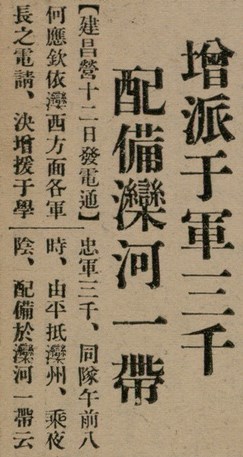 增派于軍三千
配備灤河一帶
【建昌營十二日發電通】
何應欽依灤西方面各軍
長之電請、決增援于學
忠軍三千、同隊午前八
時、由平抵灤州、乘夜
陰、配備於灤河一帶云